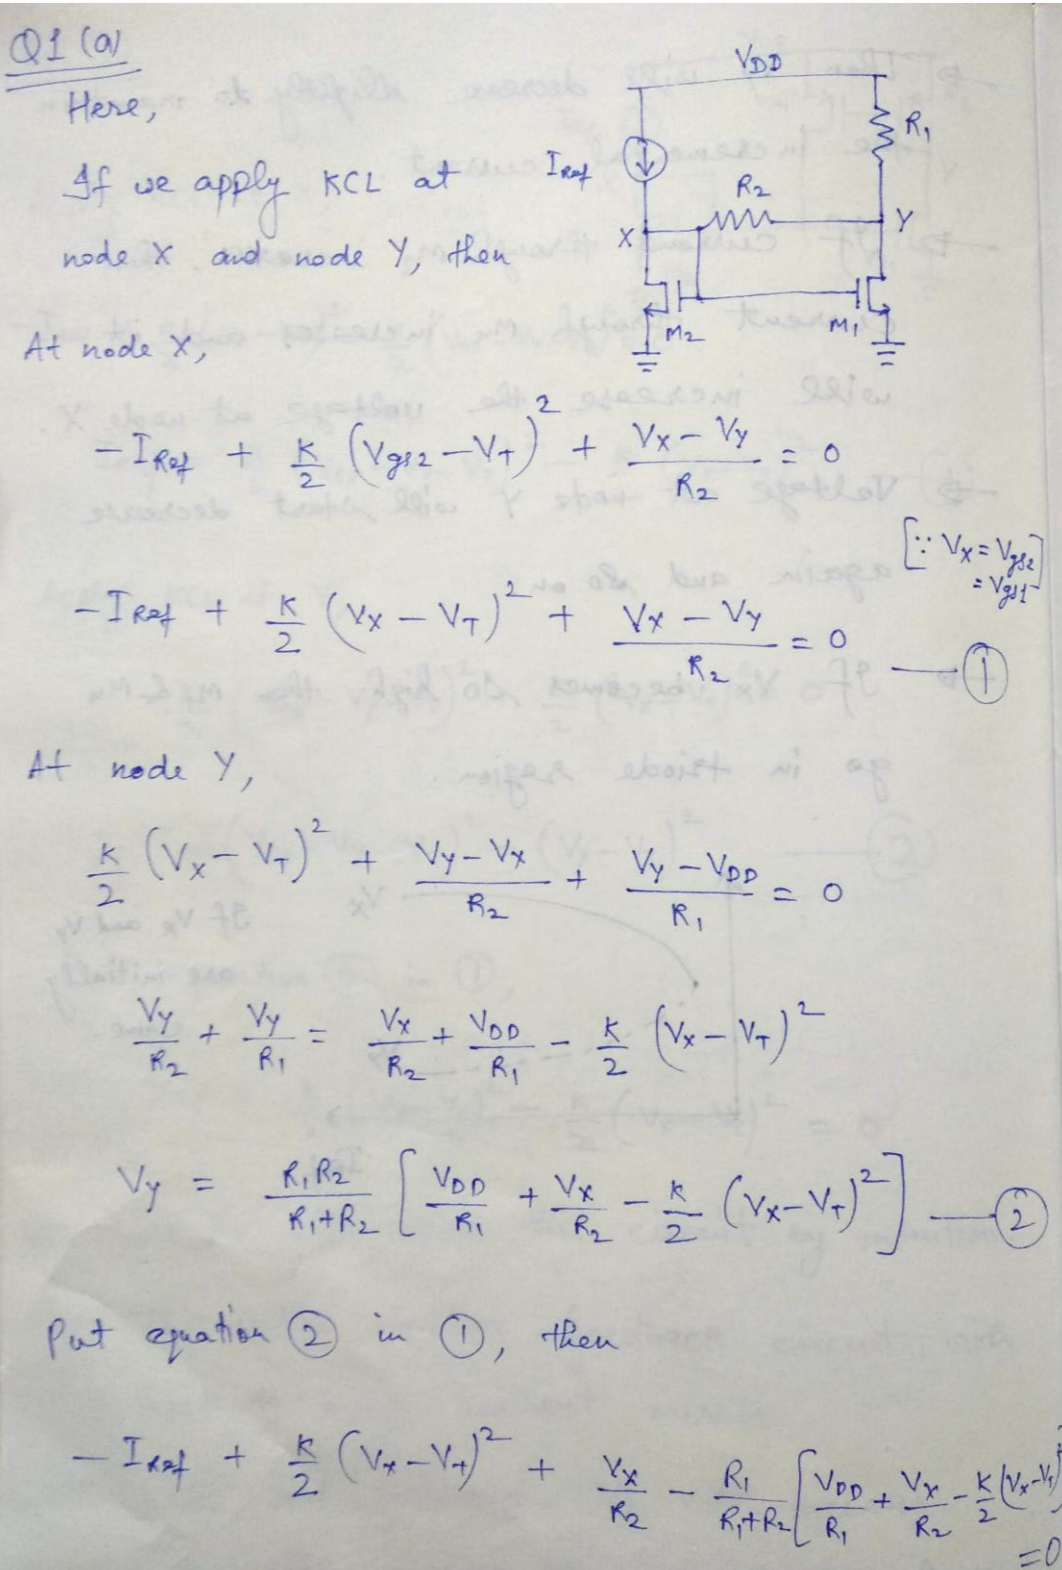 Q1 (a)
Here,
If we apply KCL at
node X and node Y, then
VDD
R1
IRef
R2
X
Y
M2
M1
At node X,
- IRef + K/2 (Vgs2 - VT)^2 + (Vx - Vy)/R2 = 0
[∵ Vx = Vgs2
= Vgs1]
- IRef + K/2 (Vx - VT)^2 + (Vx - Vy)/R2 = 0 — ①
At node Y,
K/2 (Vx - VT)^2 + (Vy - Vx)/R2 + (Vy - VDD)/R1 = 0
Vy/R2 + Vy/R1 = Vx/R2 + VDD/R1 - K/2 (Vx - VT)^2
Vy = R1R2/(R1+R2) [VDD/R1 + Vx/R2 - K/2 (Vx - VT)^2] — ②
Put equation ② in ①, then
- IRef + K/2 (Vx - VT)^2 + Vx/R2 - R1/(R1+R2) [VDD/R1 + Vx/R2 - K/2 (Vx - VT)
= 0